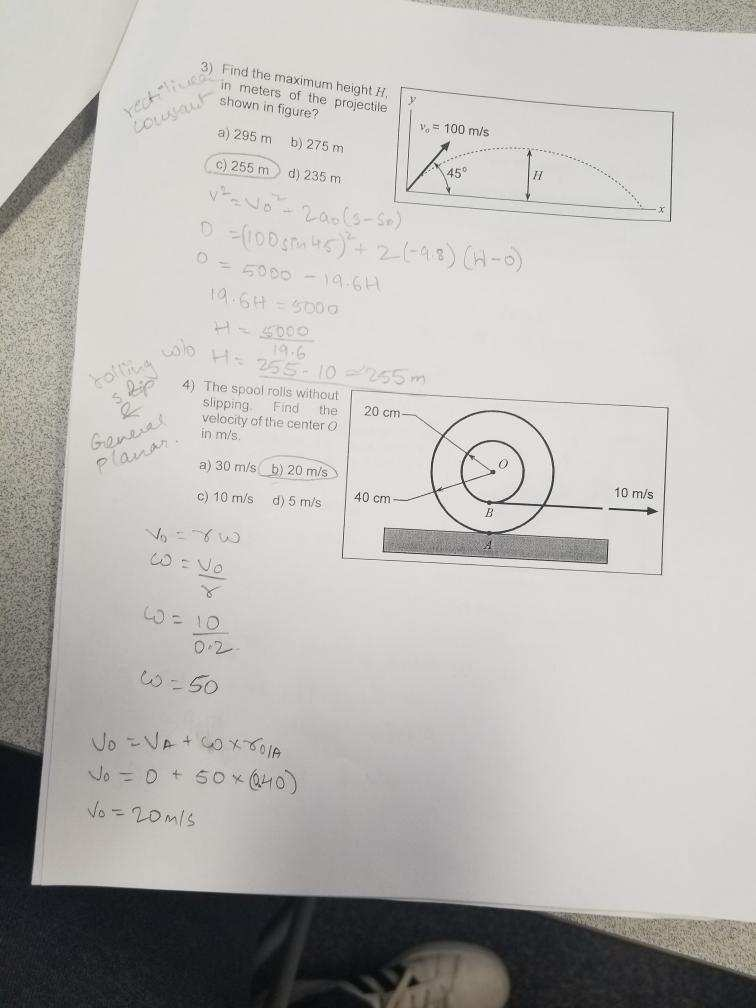 3) Find the maximum height H,
in meters of the projectile
shown in figure?
a) 295 m b) 275 m
c) 255 m d) 235 m
rectilinear
constant
y
v₀ = 100 m/s
45°
H
x
V² = V₀² - 2a₀(s-s₀)
0 = (100 sin 45)² + 2(-9.8)(H-0)
0 = 5000 - 19.6H
19.6H = 5000
H = 5000
19.6
H = 255.10 ≃ 255m
rolling w/o
slip
&
General
planar.
4) The spool rolls without
slipping. Find the
velocity of the center O
in m/s.
a) 30 m/s b) 20 m/s
c) 10 m/s d) 5 m/s
20 cm
O
40 cm
10 m/s
B
A
V₀ = rω
ω = V₀
r
ω = 10
0.2
ω = 50
V₀ = VA + ω × rO/A
V₀ = 0 + 50 × (0.40)
V₀ = 20 m/s